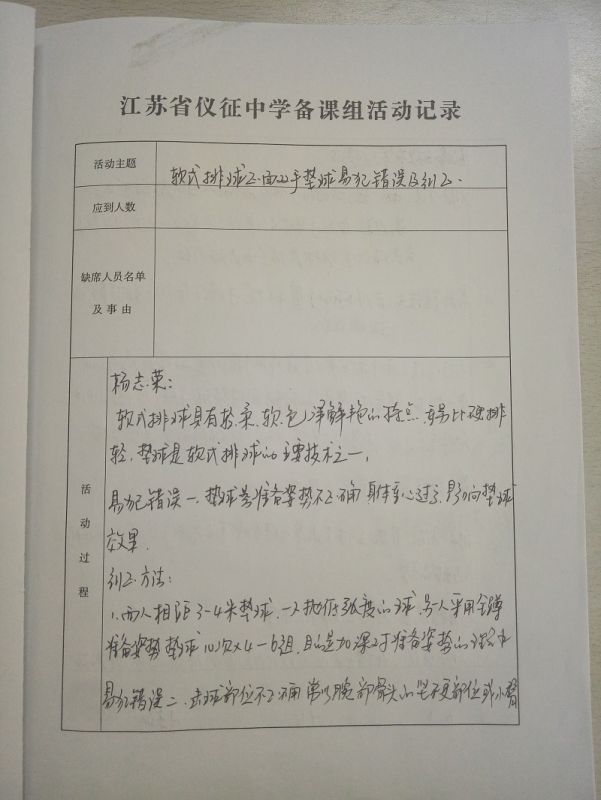 江苏省仪征中学备课组活动记录
活动主题
软式排球正面双手垫球易犯错误及纠正.
应到人数
缺席人员名单
及事由
活动过程
杨志荣:
软式排球具有轻、柔、软、色泽鲜艳的特点, 比硬排
轻, 垫球是软式排球的主要技术之一,
易犯错误一. 垫球准备姿势不正确 身体重心过高 影响垫球
效果.
纠正方法:
1、两人相距3-4米垫球, 一人抛有弧度的球, 另一人采用全蹲
准备姿势垫球10次×4-6组, 目的是加深对于准备姿势的
易犯错误二、击球部位不正确 常以腕部骨头的坚硬部位或小臂